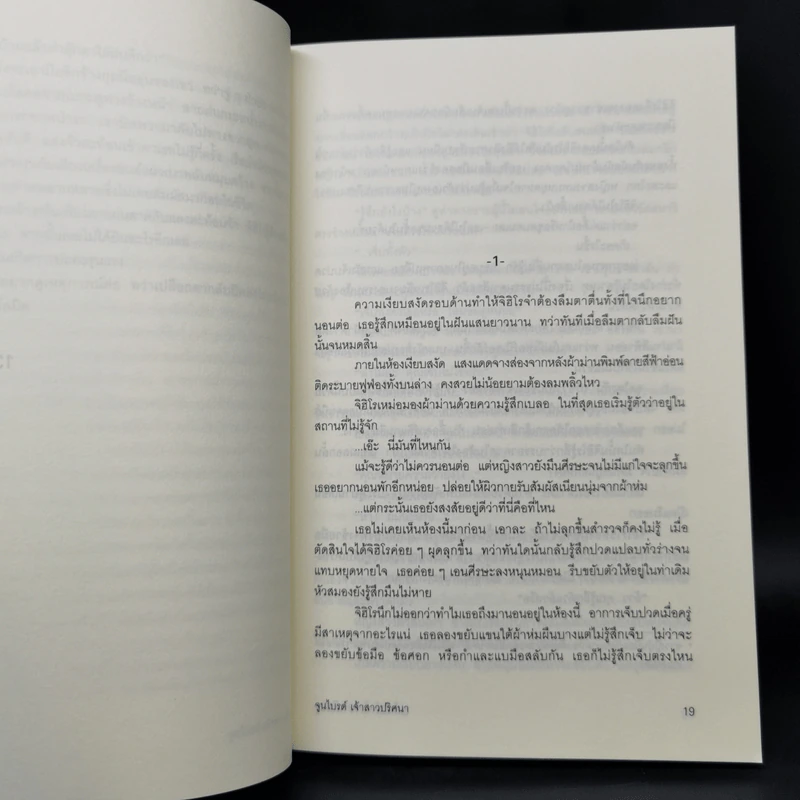 -1-
ความเงียบสงัดรอบด้านทำให้จิฮิโรจำต้องลืมตาตื่นทั้งที่ใจนึกอยาก
นอนต่อ เธอรู้สึกเหมือนอยู่ในฝันแสนยาวนาน ทว่าทันทีเมื่อลืมตากลับลืมฝัน
นั้นจนหมดสิ้น
ภายในห้องเงียบสงัด แสงแดดจางส่องจากหลังผ้าม่านพิมพ์ลายสีฟ้าอ่อน
ติดระบายฟูฟ่องทั้งบนล่าง คงสวยไม่น้อยยามต้องลมพลิ้วไหว
จิฮิโรเหม่อมองผ้าม่านด้วยความรู้สึกเบลอ ในที่สุดเธอเริ่มรู้ตัวว่าอยู่ใน
สถานที่ไม่รู้จัก
...เอ๊ะ นี่มันที่ไหนกัน
แม้จะรู้ดีว่าไม่ควรนอนต่อ แต่หญิงสาวยังมึนศีรษะจนไม่มีแก่ใจจะลุกขึ้น
เธออยากนอนพักอีกหน่อย ปล่อยให้ผิวกายรับสัมผัสเนียนนุ่มจากผ้าห่ม
...แต่กระนั้นเธอยังสงสัยอยู่ดีว่าที่นี่คือที่ไหน
เธอไม่เคยเห็นห้องนี้มาก่อน เอาละ ถ้าไม่ลุกขึ้นสำรวจก็คงไม่รู้ เมื่อ
ตัดสินใจได้จิฮิโรค่อย ๆ ผุดลุกขึ้น ทว่าทันใดนั้นกลับรู้สึกปวดแปลบทั่วร่างจน
แทบหยุดหายใจ เธอค่อย ๆ เอนศีรษะลงหนุนหมอน รีบขยับตัวให้อยู่ในท่าเดิม
หัวสมองยังรู้สึกมึนไม่หาย
จิฮิโรนึกไม่ออกว่าทำไมเธอถึงมานอนอยู่ในห้องนี้ อาการเจ็บปวดเมื่อครู่
มีสาเหตุจากอะไรแน่ เธอลองขยับแขนใต้ผ้าห่มผืนบางแต่ไม่รู้สึกเจ็บ ไม่ว่าจะ
ลองขยับข้อมือ ข้อศอก หรือกำและแบมือสลับกัน เธอก็ไม่รู้สึกเจ็บตรงไหน
จูนไบรด์ เจ้าสาวปริศนา
19